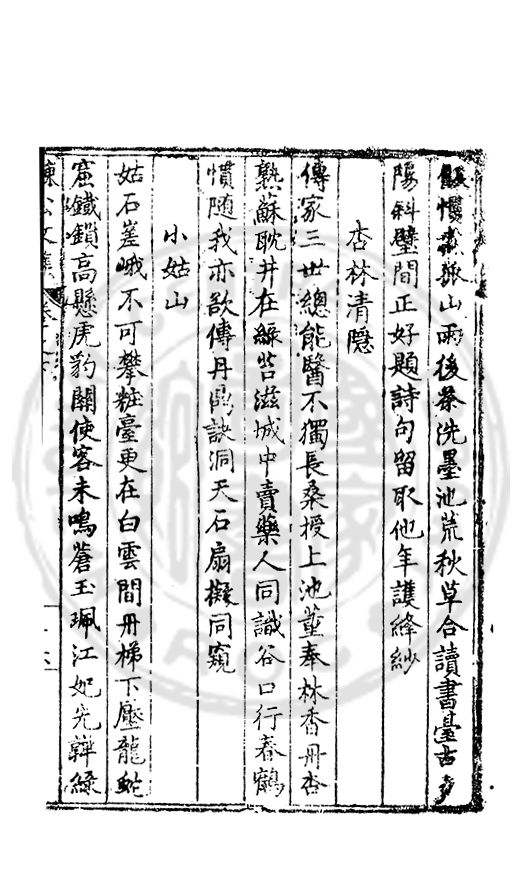 山雨後茶洗墨池荒秋草合讀書臺古夕
陽斜壁間正好題詩句留取他年護絳紗
杏林清隱
傳家三世總能醫不獨長桑授上池董奉林香丹杏
熟蘇耽井在綠苔滋城中賣藥人同識谷口行春鶴
慣隨我亦欲傳丹鼎訣洞天石扇擬同窺
小姑山
姑石嵳峨不可攀粧臺更在白雲間丹梯下壓龍蛇
窟鐵鎖高懸虎豹關使客未鳴蒼玉珮江妃先嚲綠